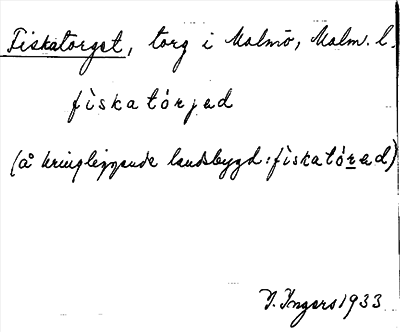 Fiskatorget, torg i Malmö, Malm. l.
fìskatórjad
(å kringliggande landsbygd: fìskatórad)
I. Ingers 1933